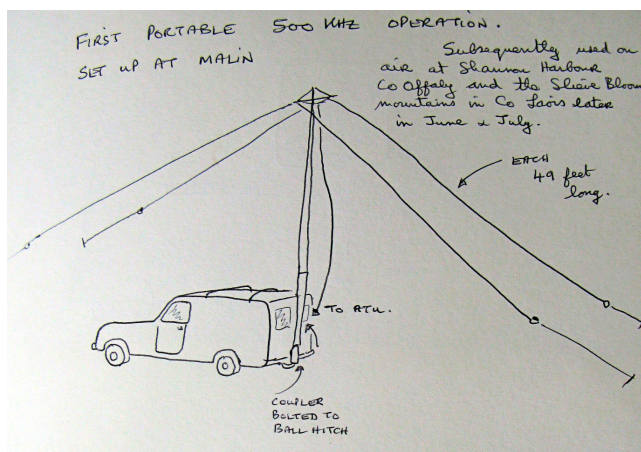 FIRST PORTABLE 500 KHZ OPERATION.
SET UP AT MALIN
Subsequently used on
air at Shannon Harbour
Co Offaly and the Slieve Bloom
mountains in Co Laois later
in June & July.
EACH
49 feet
long.
TO ATU.
COUPLER
BOLTED TO
BALL HITCH